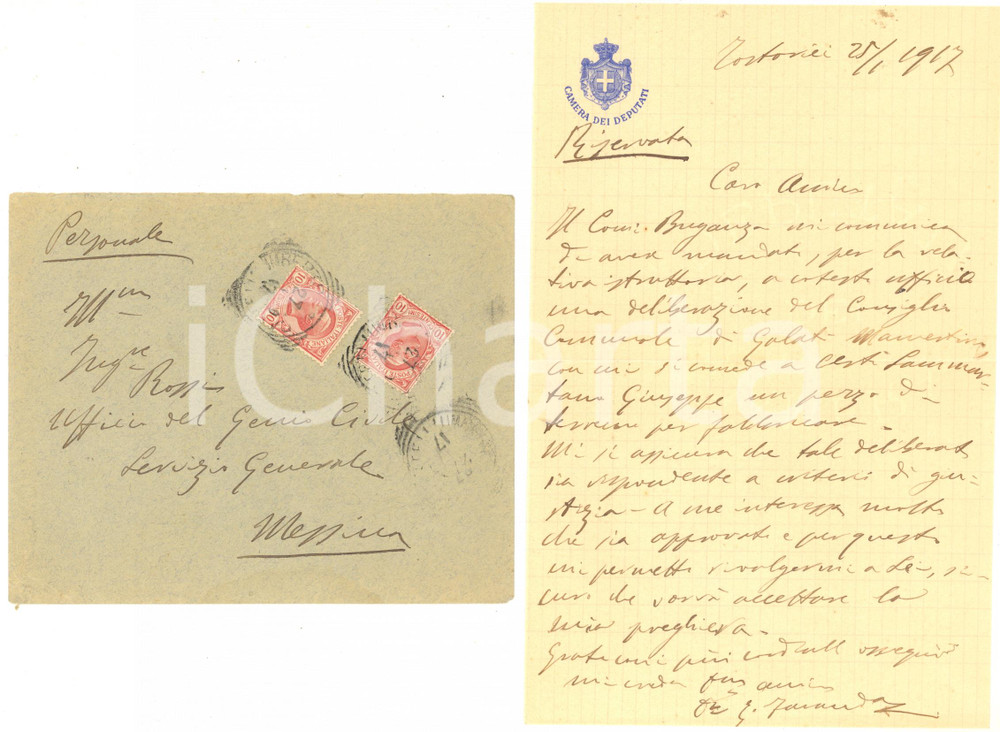 Personale
Ill.mo
Ing.re
Rossi
Ufficio del Genio Civile
Servizio Generale
Messina
CAMERA DEI DEPUTATI
Tortorici 25/1 1917
Riservata
Caro Amico
Il Com. Briganza mi comunica
di aver mandato, per la rela-
tiva istruttoria, a cotesto ufficio
una deliberazione del Consiglio
Comunale di Galati Mamertino,
con cui si concede a certi Sammar-
tano Giuseppe un pezzo di
terreno per fabbricare.
Mi si assicura che tale deliberato
sia rispondente a criteri di giu-
stizia - A me interessa molto
che sia approvato e per questo
mi permetto rivolgermi a Lei, si-
curo che vorrà accettare la
mia preghiera.
Grato coi più cordiali ossequi
mi creda suo amico
iCharta